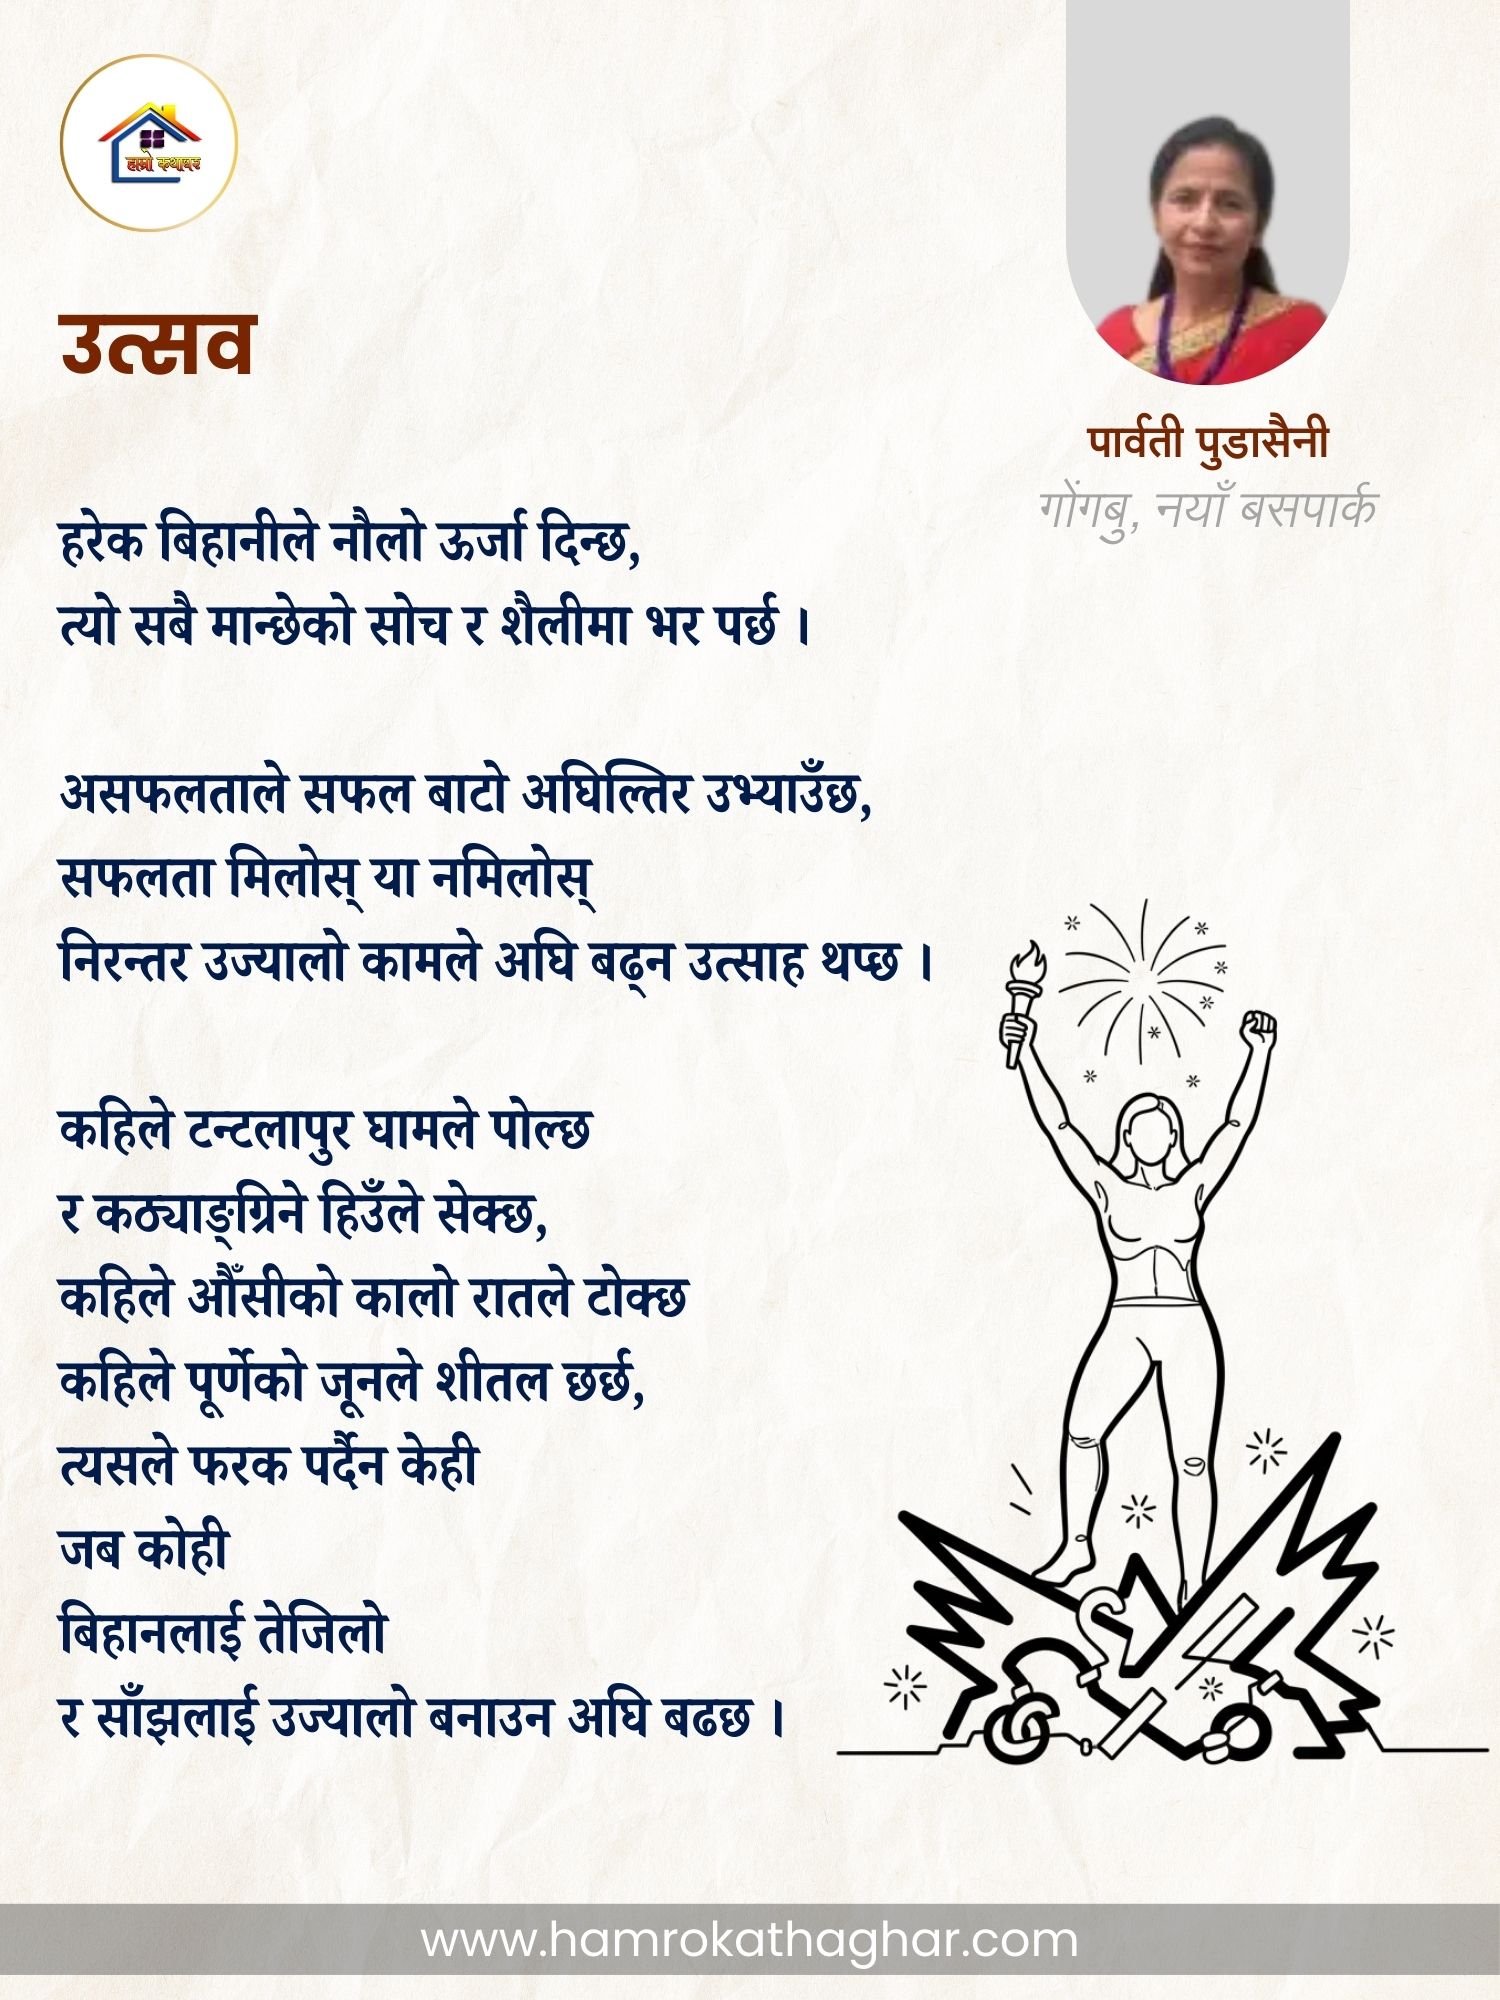 हाम्रो कथाघर
उत्सव
पार्वती पुडासैनी
गोंगबु, नयाँ बसपार्क
हरेक बिहानीले नौलो ऊर्जा दिन्छ,
त्यो सबै मान्छेको सोच र शैलीमा भर पर्छ ।
असफलताले सफल बाटो अघिल्तिर उभ्याउँछ,
सफलता मिलोस् या नमिलोस्
निरन्तर उज्यालो कामले अघि बढ्न उत्साह थप्छ ।
कहिले टन्टलापुर घामले पोल्छ
र कठ्याङ्ग्रिने हिउँले सेक्छ,
कहिले औँसीको कालो रातले टोक्छ
कहिले पूर्णेको जूनले शीतल छर्छ,
त्यसले फरक पर्दैन केही
जब कोही
बिहानलाई तेजिलो
र साँझलाई उज्यालो बनाउन अघि बढछ ।
www.hamrokathaghar.com